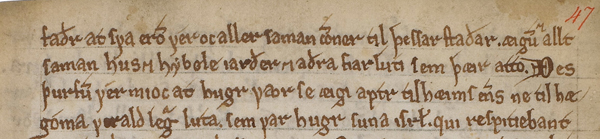 47
faðr at sva ero ver oc aller saman comner til þessar staðar. ægu allt
saman hus ⁊ hybole iarðer ⁊ aðra fiarluti sem þæir atto. Des
þurfu ver mioc at hugr vaR se æigi aptr til hæimsens ne til hæ
goma veralld leg luta. sem var hugr suna isrl. qui respitiebant